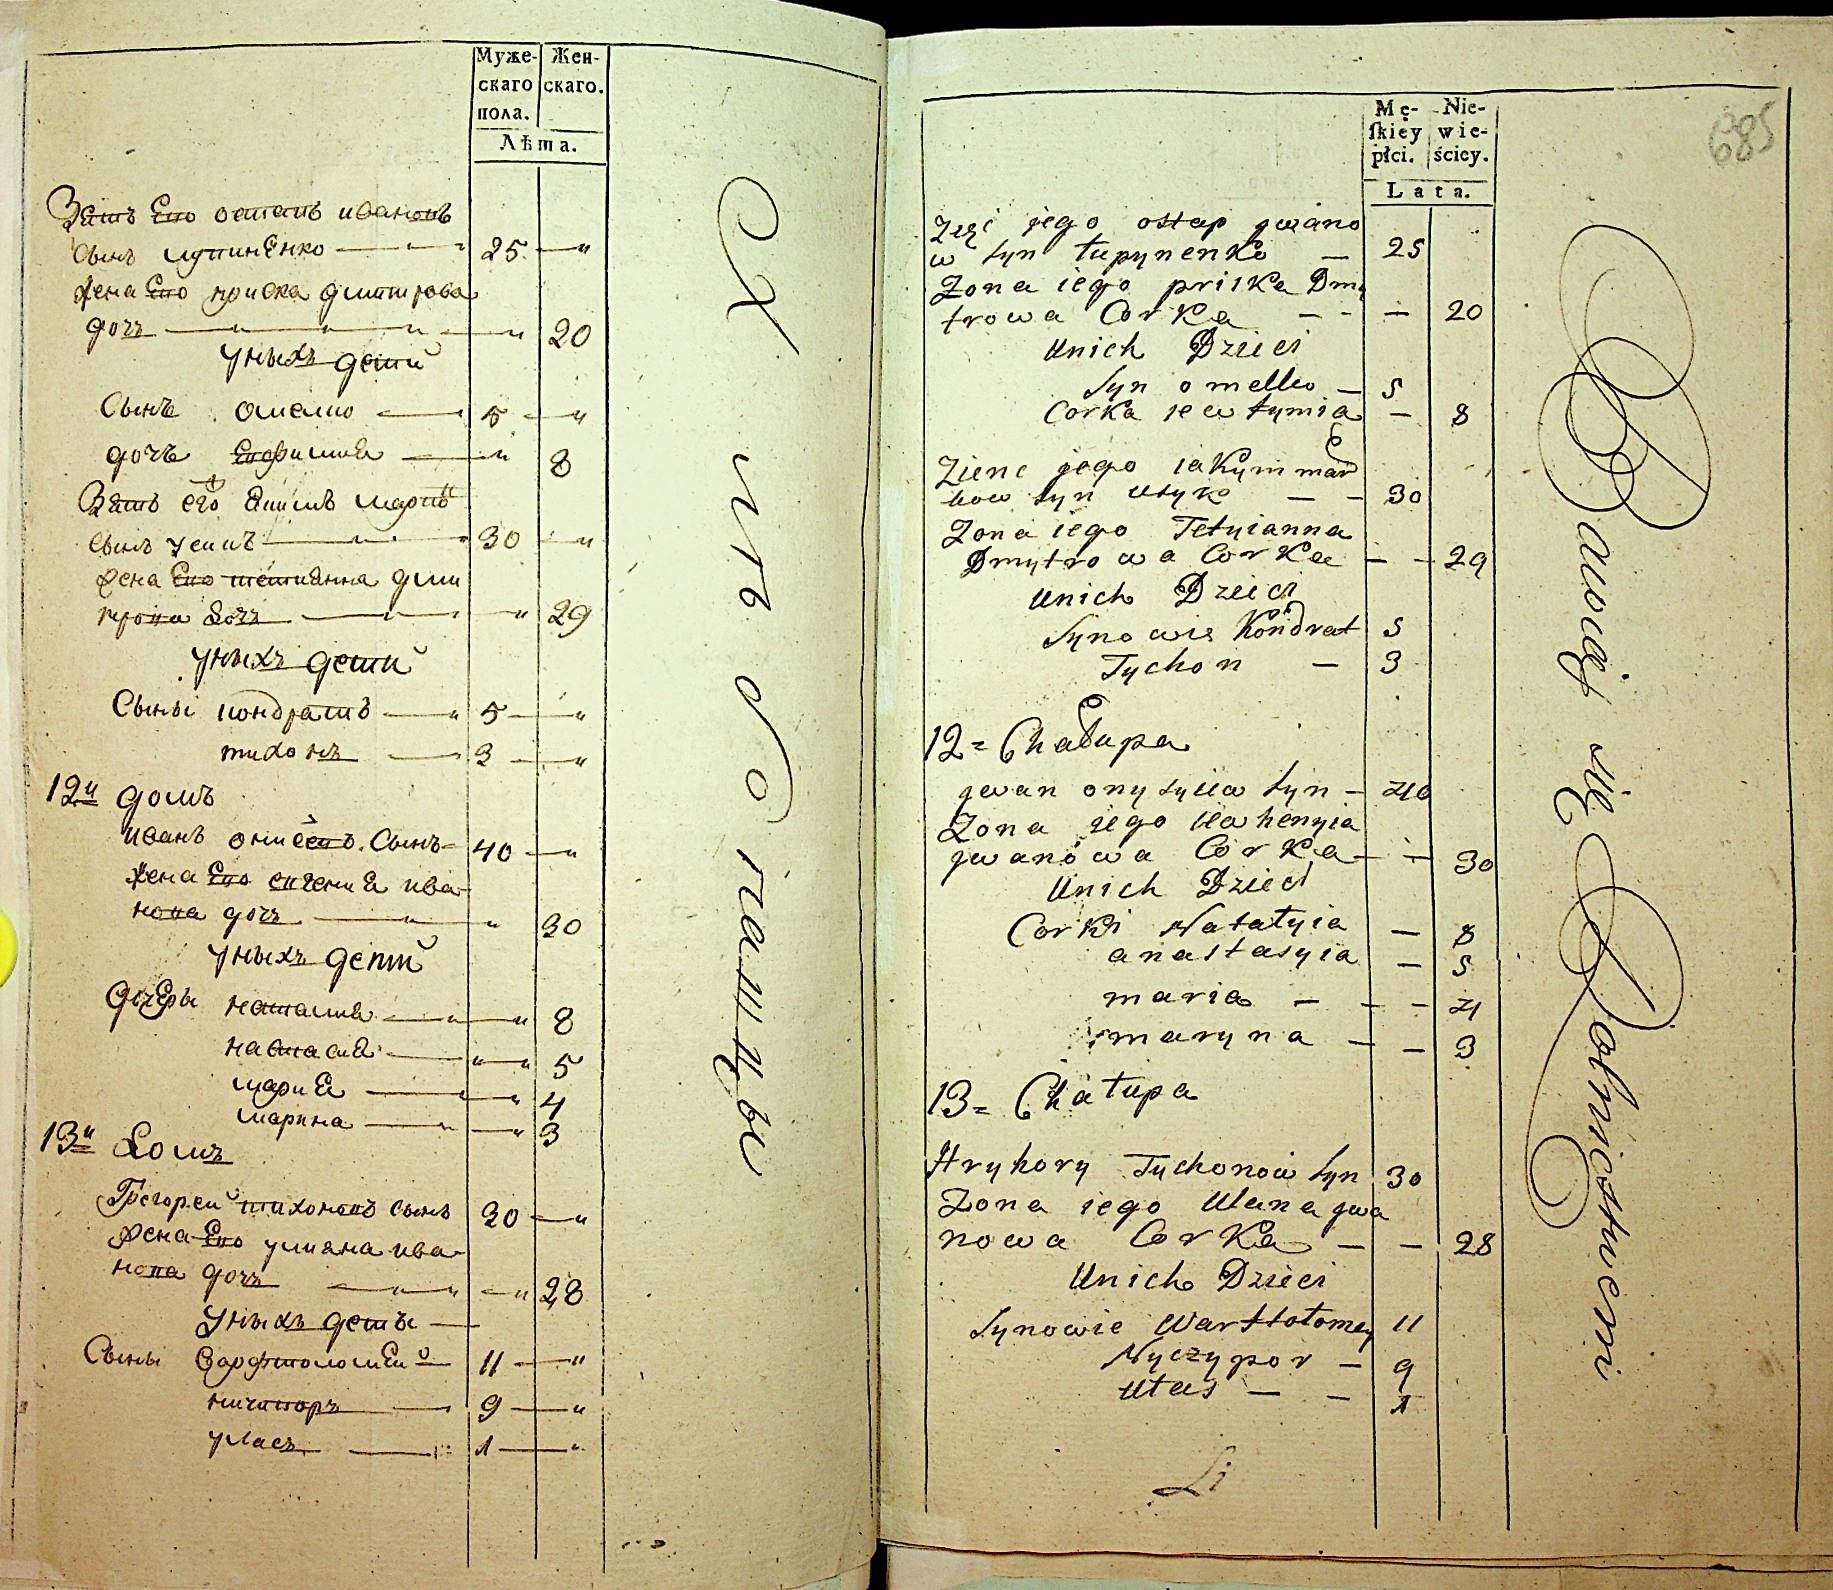 Муже-
скаго
пола.
Жен-
скаго.
Лѣта.
Зять Его остапъ ивановъ
Сынъ лупинЕнко 25
жена Его приска дмитрова
дочь 20
У ныхъ детей
Сынъ омелко 5
дочь Евфимия 8
Зять его Якимъ марковъ
Сынъ усикъ 30
жена Его тетиянна дми
трова дочь 29
У ныхъ детей
Сыны кондратъ 5
тихонъ 3
12й домъ
иванъ онисковъ Сынъ 40
жена Его евгения ива
нова дочь 30
У ныхъ детей
дочЕры наталия 8
настасия 5
мария 4
марина 3
13й домъ
Грегорей тихоновъ Сынъ 30
жена Его улияна ива
нова дочь 28
У ныхъ деты
Сыны Варфтоломей 11
ничипоръ 9
уласъ 1
хлѣбопашцы
685
Mę-
ſkiey
płci.
Nie-
wie-
ściey.
Lata.
Zięć jego ostap jwano
w syn łupynenko 25
Zona iego priska Dmy
trowa Corka 20
Unich Dzieci
Syn omelko 5
Corka jewtymia 8
Zienc jego iakym mar
kow syn usyk 30
Zona iego Tetyianna
Dmytrowa Corka 29
Unich Dzieci
Synowie Kondrat 5
Tychon 3
12 = Chałupa
jwan onysywa syn 40
Zona jego jewhenyia
jwanowa Corka 30
Unich Dzieci
Corki Natałyia 8
anastasyia 5
maria 4
maryna 3
13 = Chałupa
Hryhory Tychonow syn 30
Zona iego Ulana jwa
nowa Corka 28
Unich Dzieci
Synowie Warftołomey 11
Nyczypor 9
Ułas 1
Li
Bawią się Rolnictwem